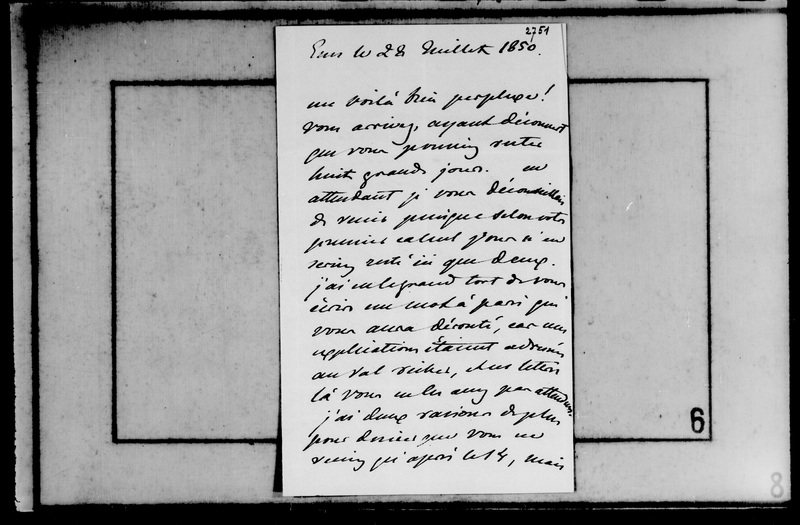 2751
Ems le 28 Juillet 1850.
me voilà bien perplexe !
vous arrivez, ayant découvert
que vous pouviez rester
huit grands jours. en
attendant je vous déconseillais
de venir puisque selon votre
premier calcul vous n'en
seriez resté ici que deux.
j'ai eu le grand tort de vous
écrire un mot à paris qui
vous aura dérouté, car mes
explications étaient adressées
au Val richer, et ces lettres
là vous ne les avez pas attendues.
j'ai deux raisons de plus
pour désirer que vous ne
veniez qu'après le 14, mais
6
8